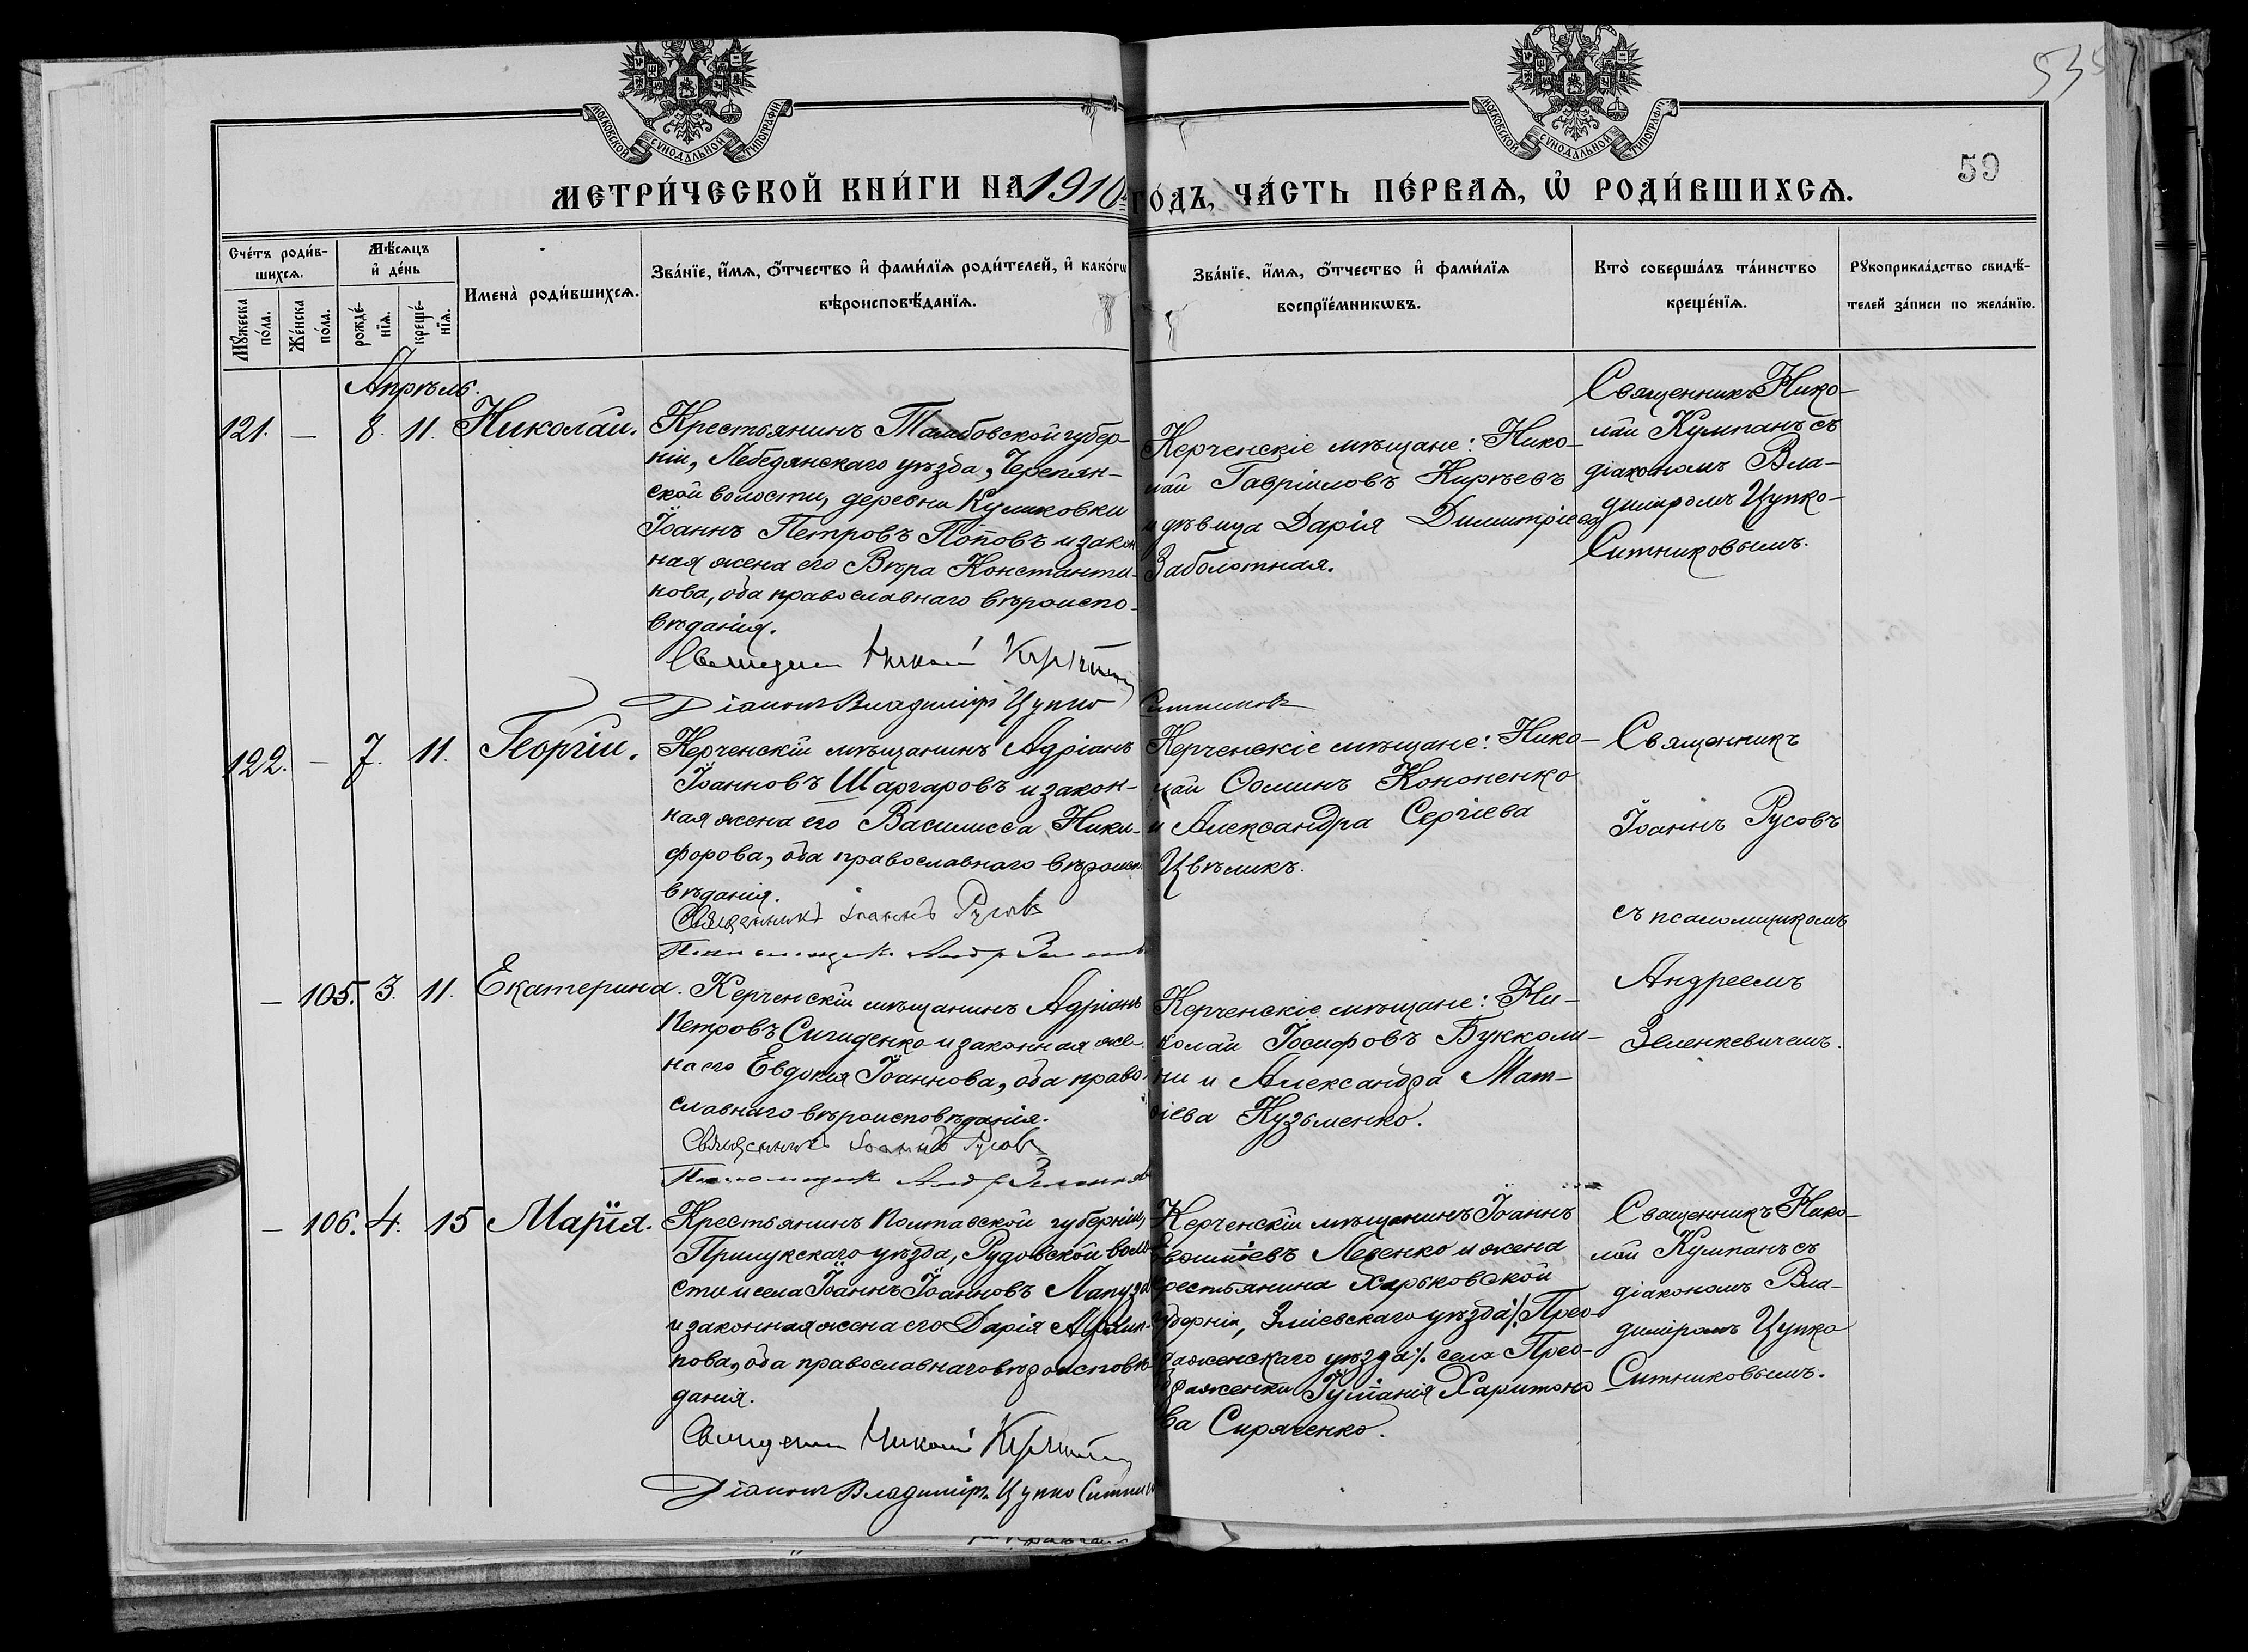 535
59
МОСКОВСКОЙ СѴНОДАЛЬНОЙ ТИПОГРАФІИ
МОСКОВСКОЙ СѴНОДАЛЬНОЙ ТИПОГРАФІИ
МЕТРИ́ЧЕСКОЙ КНИ́ГИ НА 1910 ГО́ДЪ, ЧА́СТЬ ПЕ́РВАѦ, Ѡ҆ РОДИ́ВШИХСѦ.
Сче́тъ роди́в-
шихсѧ.
Мꙋ́жеска
по́ла.
Же́нска
по́ла.
Мѣ́сѧцъ
и҆ де́нь
рожде́-
нїѧ.
креще́-
нїѧ.
Имена̀ роди́вшихсѧ.
Зва́нїе, и҆́мѧ, ѻ҆́тчество и҆ фами́лїѧ роди́телей, и҆ како́гѡ
вѣроисповѣ́данїѧ.
Зва́нїе, и҆́мѧ, ѻ҆́тчество и҆ фами́лїѧ
воспрїе́мникѡвъ.
Кто̀ соверша́лъ та́инство
креще́нїѧ.
Рꙋкоприкла́дство свидѣ́-
телей за́писи по жела́нїю.
Апрѣль.
121. — 8. 11. Николай.
Крестьянинъ Тамбовской губер-
ніи, Лебедянскаго уѣзда, Черепян-
ской волости, деревни Куликовки
Іоаннъ Петровъ Поповъ и закон
ная жена его Вѣра Константи-
нова, оба православнаго вѣроиспо-
вѣданія.
Священникъ Николай
Діаконъ Владиміръ Цупко Ситниковъ
Керченскіе мѣщане: Нико-
лай Гавріиловъ Кирѣевъ
и дѣвица Дарія Димитріева
Заболотная.
Священникъ Нико-
лай Кумпанъ съ
діакономъ Вла-
диміромъ Цупко-
Ситниковымъ.
122. — 7. 11. Георгій.
Керченскій мѣщанинъ Адріанъ
Іоанновъ Шаргаровъ и закон-
ная жена его Василисса Ники-
форова, оба православнаго вѣроиспо
вѣданія.
Священникъ Іоаннъ Русовъ
Псаломщикъ Андр
Керченскіе мѣщане: Нико-
лай Ѳоминъ Кононенко
и Александра Сергіева
Цвѣликъ.
Священникъ
Іоаннъ Русовъ
съ псаломщикомъ
Андреемъ
Зеленкевичемъ.
— 105. 3. 11. Екатерина.
Керченскій мѣщанинъ Адріанъ
Петровъ Сигиденко и законная же-
на его Евдокія Іоаннова, оба право
славнаго вѣроисповѣданія.
Священникъ Іоаннъ Русовъ
Псаломщикъ Андр
Керченскіе мѣщане: Ни-
колай Іосифовъ Букколи-
ни и Александра Мат-
ѳіева Кузьменко.
— 106. 4. 15 Марія.
Крестьянинъ Полтавской губерніи,
Прилукскаго уѣзда, Рудовской воло
сти и села Іоаннъ Іоанновъ Лапузa
и законная жена его Дарія
нова, оба православнаго вѣроисповѣ
данія.
Священникъ Николай
Діаконъ Владиміръ Цупко Ситник
Керченскій мѣщанинъ Іоаннъ
Леденко и жена
крестьянина Харьковской
губерніи, Зміевскаго уѣзда /. Прео-
браженскаго уѣзда ./. села Прео-
браженки Іуліанія Харитоно
ва Сиряченко.
Священникъ Нико-
лай Кумпанъ съ
діакономъ Вла-
диміромъ Цупко
Ситниковымъ.